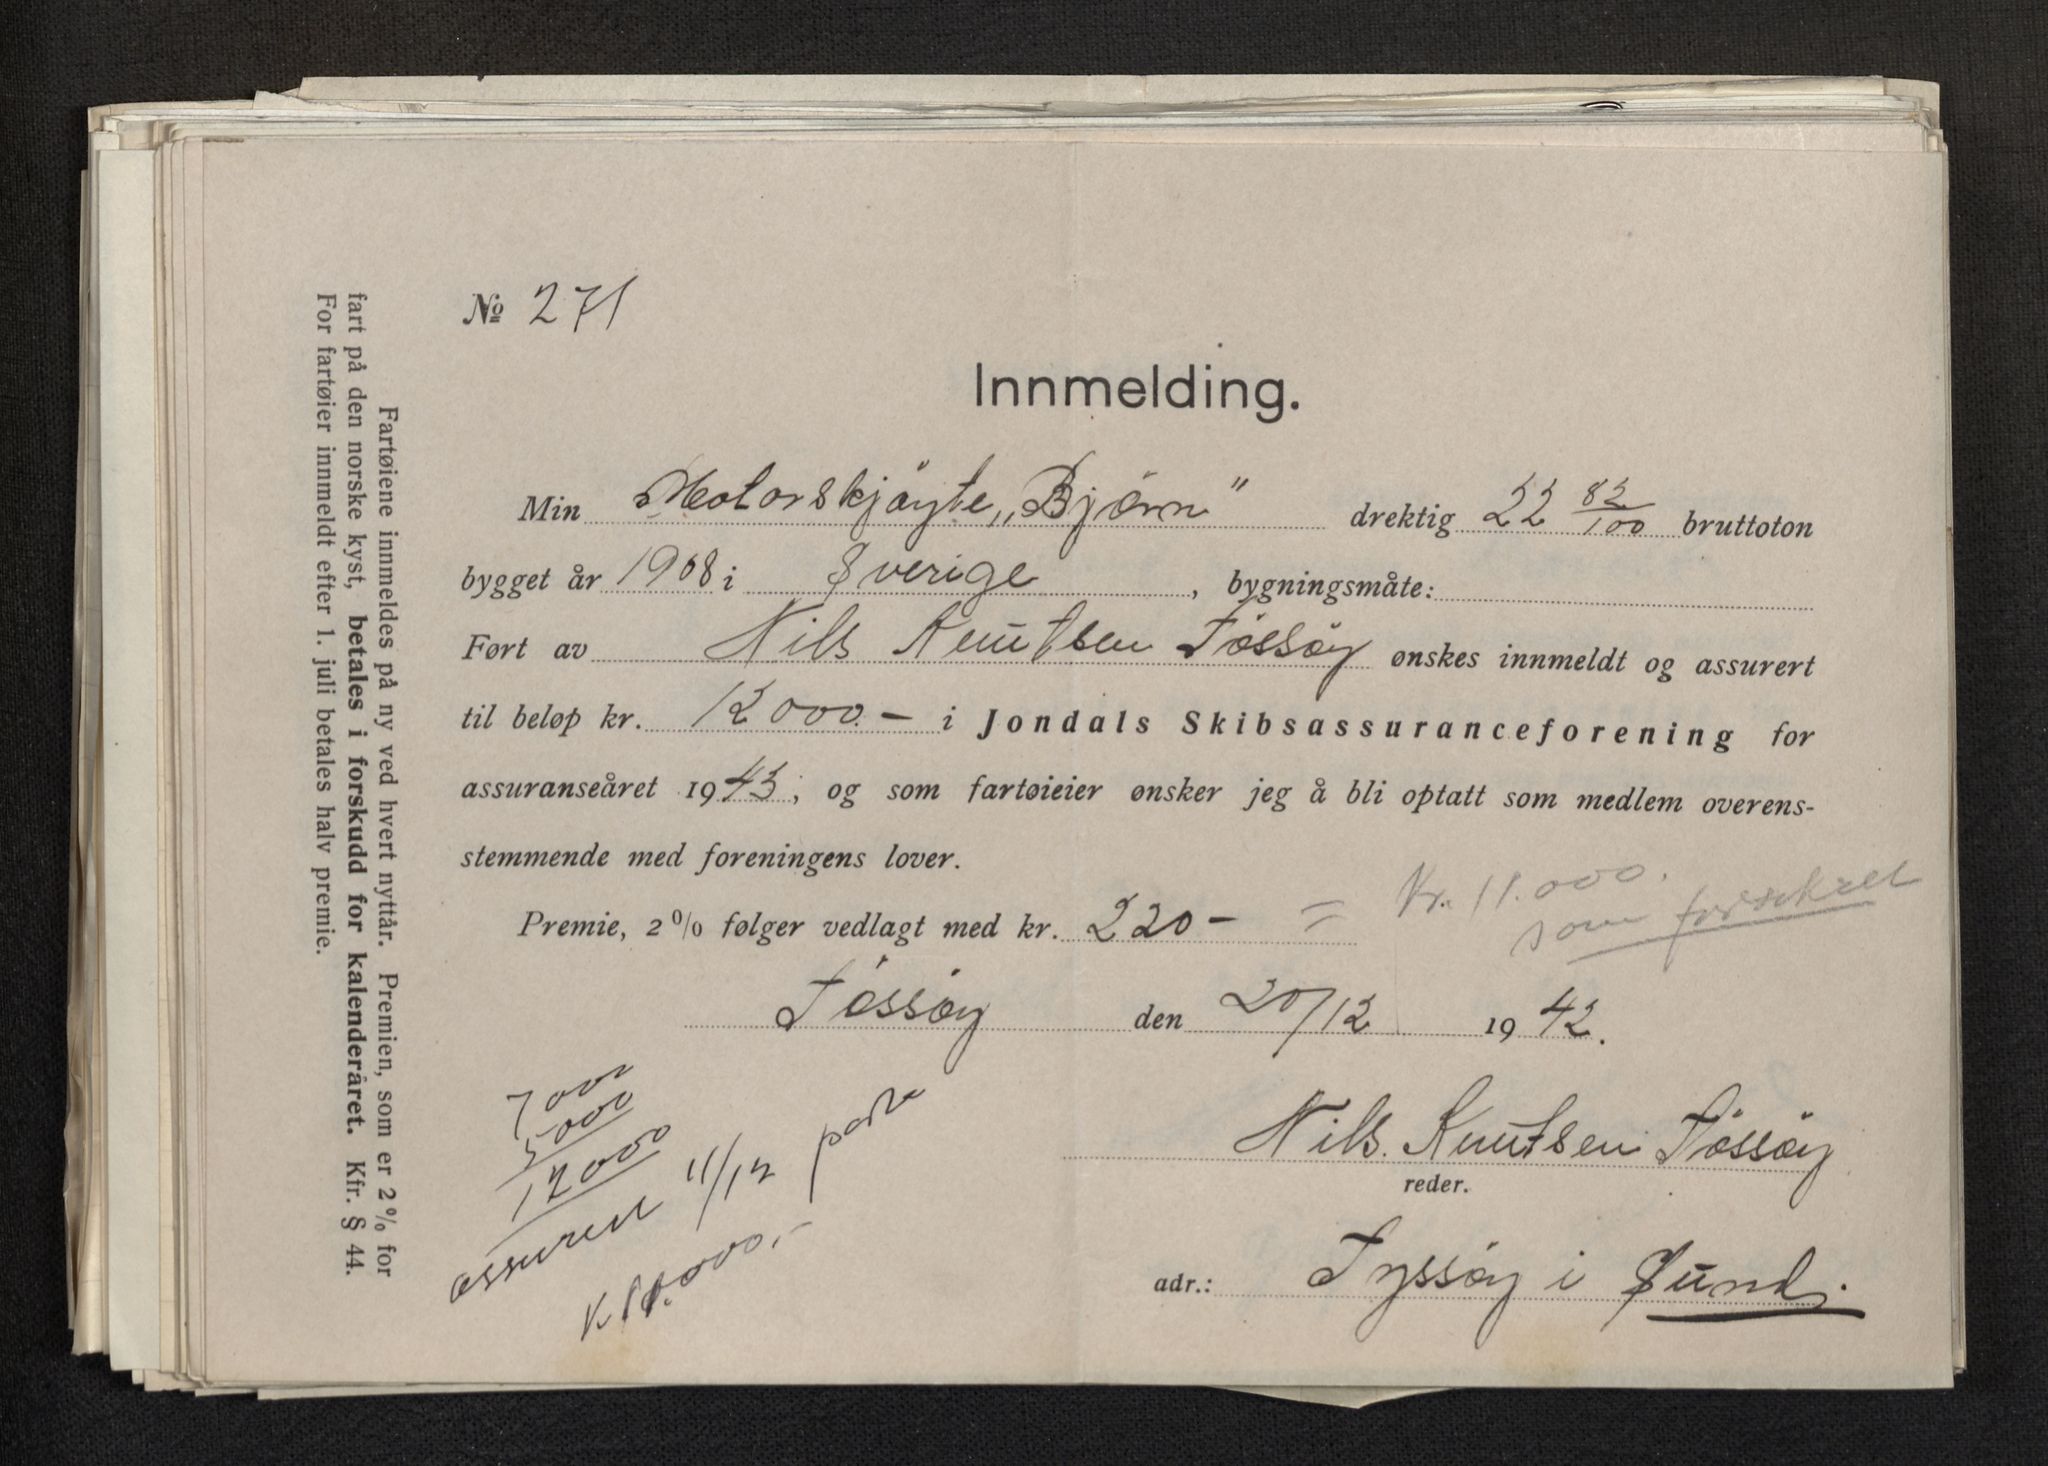 № 271
Innmelding.
Min Motorskjöyte „Björn" drektig 22 82/100 bruttoton
bygget år 1908 i Sverige, bygningsmåte:
Ført av Nils Knutsen Tössöy ønskes innmeldt og assurert
til beløp kr. 12000.— i Jondals Skibsassuranceforening for
assuranseåret 1943; og som fartøieier ønsker jeg å bli optatt som medlem overens-
stemmende med foreningens lover.
Premie, 2% følger vedlagt med kr. 220— = Kr. 11.000.
som
Tössöy den 20/12 1942.
7000
5000
12000
assurert 11/12 parta
Nils. Knutsen Tössöy
reder.
kr 11.000.-
adr.: Tyssöy i Sund.
Fartøiene innmeldes på ny ved hvert nyttår. Premien, som er 2% for
fart på den norske kyst, betales i forskudd for kalenderåret. Kfr. § 44.
For fartøier innmeldt efter 1. juli betales halv premie.